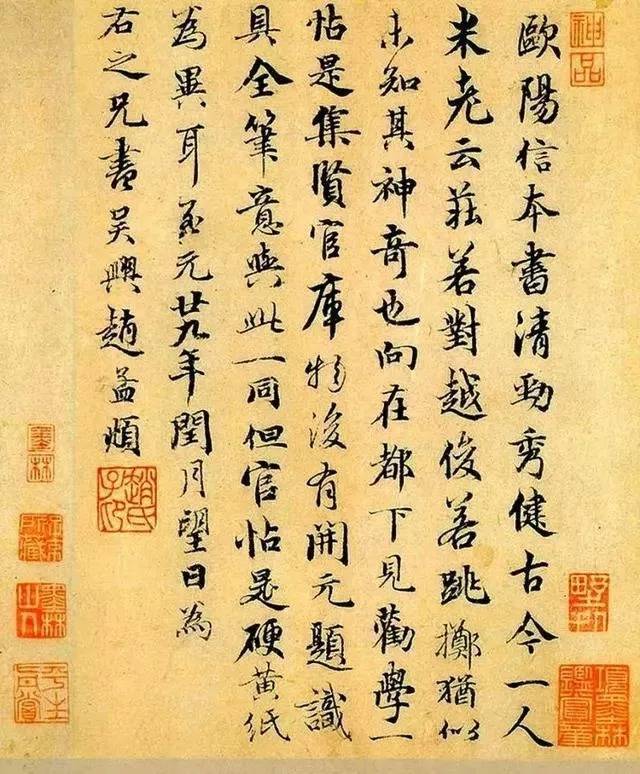 神品
歐陽信本書清勁秀健古今一人
米老云莊若對越俊若跳擲猶似
未知其神奇也向在都下見勸學一
帖是集賢官庫物後有開元題識
具全筆意與此一同但官帖是硬黄紙
為異耳至元廿九年閏月望日為
右之兄書吳興趙孟頫
趙氏子昂
項墨林鑑賞章
墨林
平生真賞